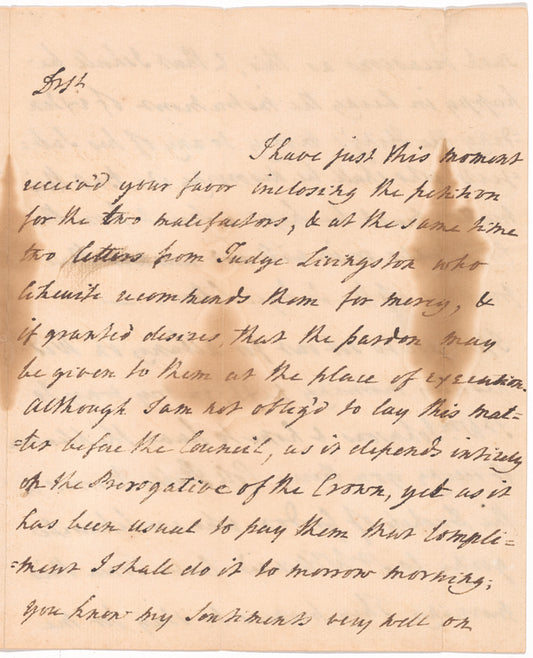 Dr Sr
I have just this moment
receiv'd your favor inclosing the petition
for the two malefactors, & at the same time
two letters from Judge Livingston who
likewise recommends them for mercy, &
if granted desires that the pardon may
be given to them at the place of execution.
Although I am not oblig'd to lay this mat-
=ter before the Council, as it depends intirely
on the Prerogative of the Crown, yet as it
has been usual to pay them that Compli-
=ment I shall do it to morrow morning;
you know my Sentiments very well on